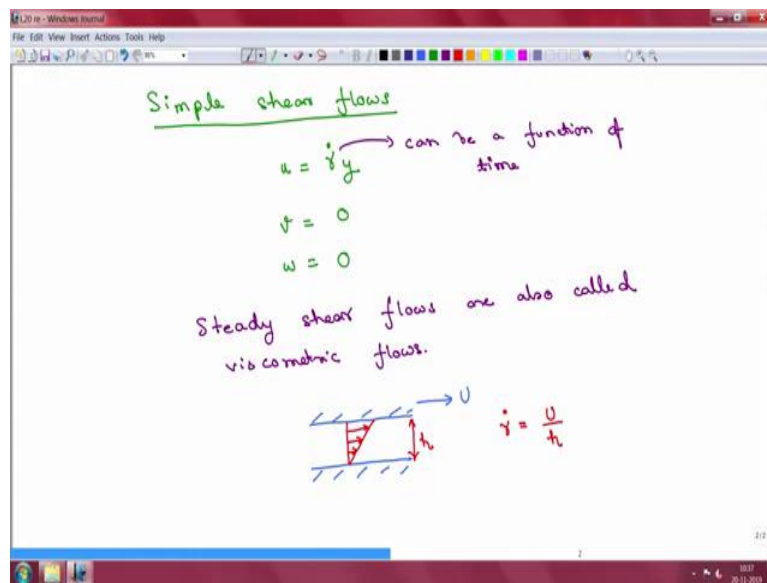 L20 re - Windows Journal
File Edit View Insert Actions Tools Help
Simple shear flows
u = γ̇y → can be a function of
time
v = 0
w = 0
Steady shear flows are also called
viscometric flows.
U
h
γ̇ = U/h
2
2/2
10:37
20-11-2019